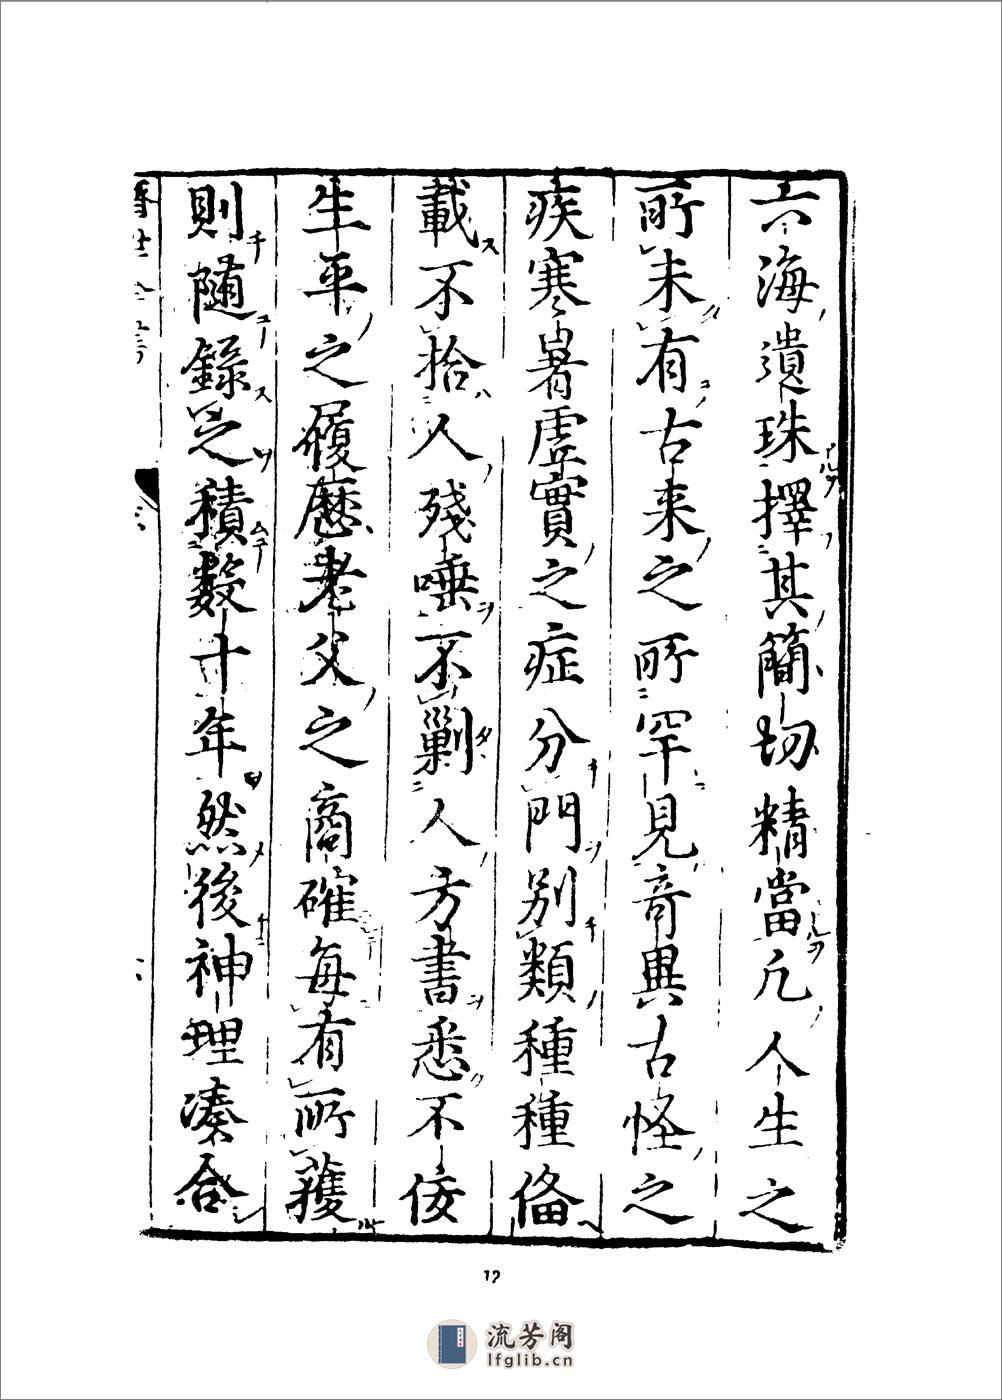 六海遺珠擇其簡切精當凡人生之
所未有古来之所罕見竒異古怪之
疾寒暑虛實之症分門別類種種俻
載不拾人殘唾不剿人方書悉不佞
生平之履歷老父之商確每有所獲
則随錄之積數十年然後神理湊合
12
流芳阁
lfglib.cn